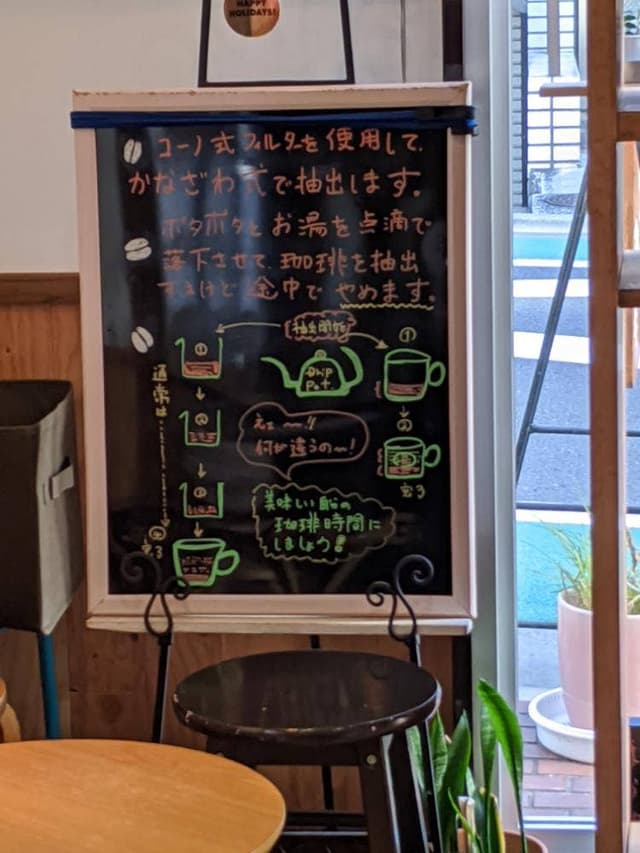 HAPPY
HOLIDAYS!
コーノ式フィルターを使用して、
かなざわ式で抽出します。
ポタポタとお湯を点滴で
落下させて、珈琲を抽出
するけど途中でやめます。
抽出開始
①
①
Drip
Pot
通常は
②
②
えぇ〜!!
何が違うの〜!
③
美味しい
珈琲時間に
しましょう!
④